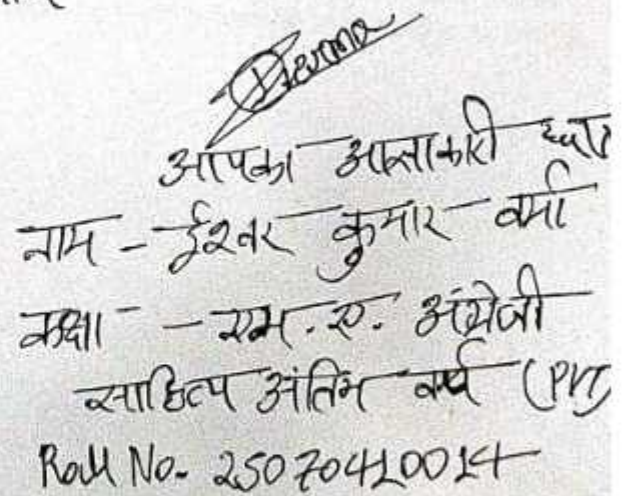 आपका आज्ञाकारी छात्र
नाम - ईश्वर कुमार वर्मा
कक्षा - एम. ए. अंग्रेजी
साहित्य अंतिम वर्ष (Pvt)
Roll No. 25070410014